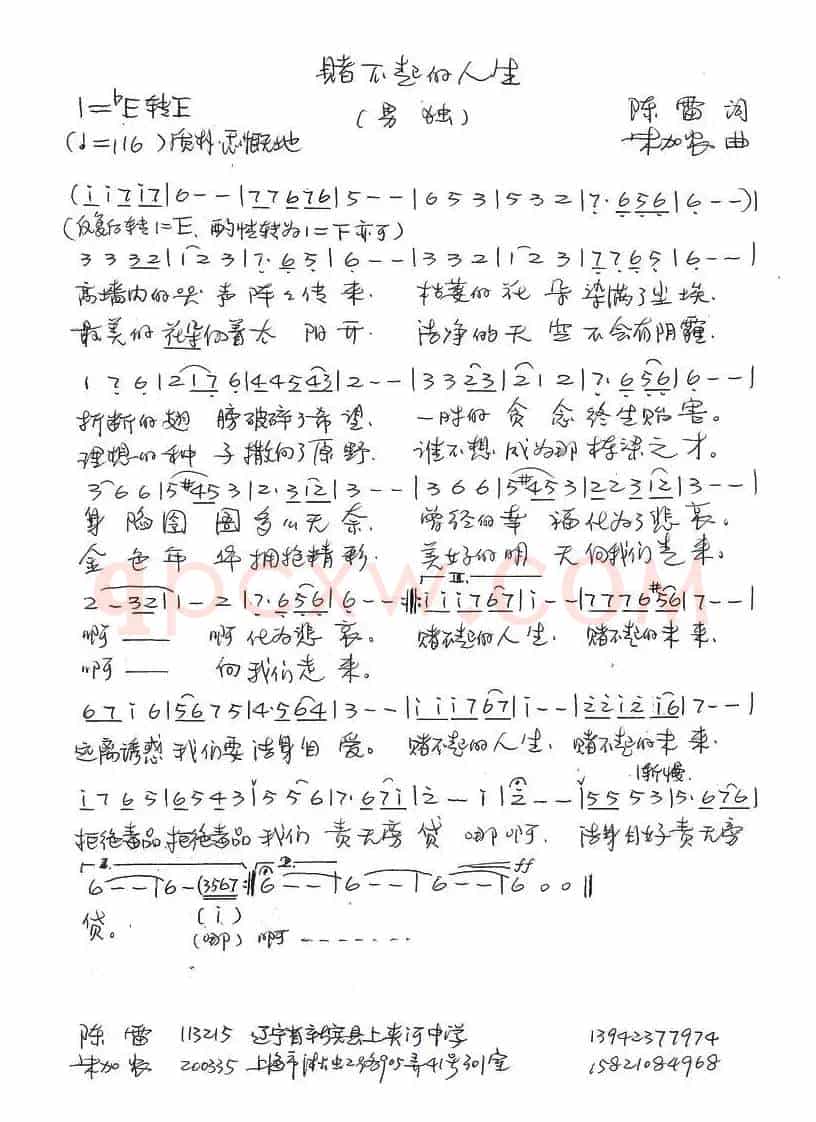 赌不起的人生
1=♭E转E
(男 独)
陈 雷 词
(♩=116)质朴 感慨地
朱加农 曲
(i i 7 i 7|6 - -|7 7 6 7 6|5 - -|6 5 3|5 3 2|7· 6 5 6|6 - -)|
(反复后转1=E、酌性转为1=F亦可)
3 3 3 2|1 2 3|7· 6 5|6 - -|3 3 2|1 2 3|7 7 6 5|6 - -|
高墙内的哭 声 阵々传来. 枯萎的花 朵 染满了尘埃.
最美的花朵向着太 阳开. 洁净的天 空 不会有阴霾.
1 7 6|2 1 7 6|4 4 5 4 3|2 - -|3 3 2 3|2 1 2|7· 6 5 6|6 - -|
折断的翅 膀破碎了希望. 一时的贪 念 终生贻害。
理想的种 子撒向了原野. 谁不想 成为那 栋梁之才。
3 6 6|5 #4 5 3|2· 3 1 2|3 - -|3 6 6|5 #4 5 3|2 2 3 1 2|3 - -|
身陷囹 圄多么无奈. 曾经的幸 福化为了悲哀。
金色年 华拥抱精彩. 美好的明 天向我们走来。
2 - 3 2|1 - 2|7· 6 5 6|6 - -:‖i i i 7 6 7|i - -|7 7 7 6 #5 6|7 - -|
啊—— 啊 化为悲 哀。 赌不起的人生. 赌不起的未来.
啊—— 向我们走来。
6 7 i 6|5 6 7 5|4· 5 6 4|3 - -|i i i 7 6 7|i - -|2 2 i 2 i 6|7 - -|
远离诱惑 我们要 洁身自 爱。 赌不起的人生. 赌不起的未来.
渐慢
i 7 6 5|6 5 4 3|5 5 6|7· 6 7 i|2 - i|2 - -|5 5 5 3|5· 6 7 6|
拒绝毒品 拒绝毒品 我们 责无旁 贷 哪啊. 洁身自好责无旁
1. 2. ff
6 - -|6 - (3567:‖6 - -|6 - -|6 - -|6 0 0‖
贷。 (i)
(哪) 啊 - - - - - - - -
陈 雷 113215 辽宁省新宾县上夹河中学 13942377974
朱加农 200335 上海市905弄41号301室 15821084968
qpcxw.com